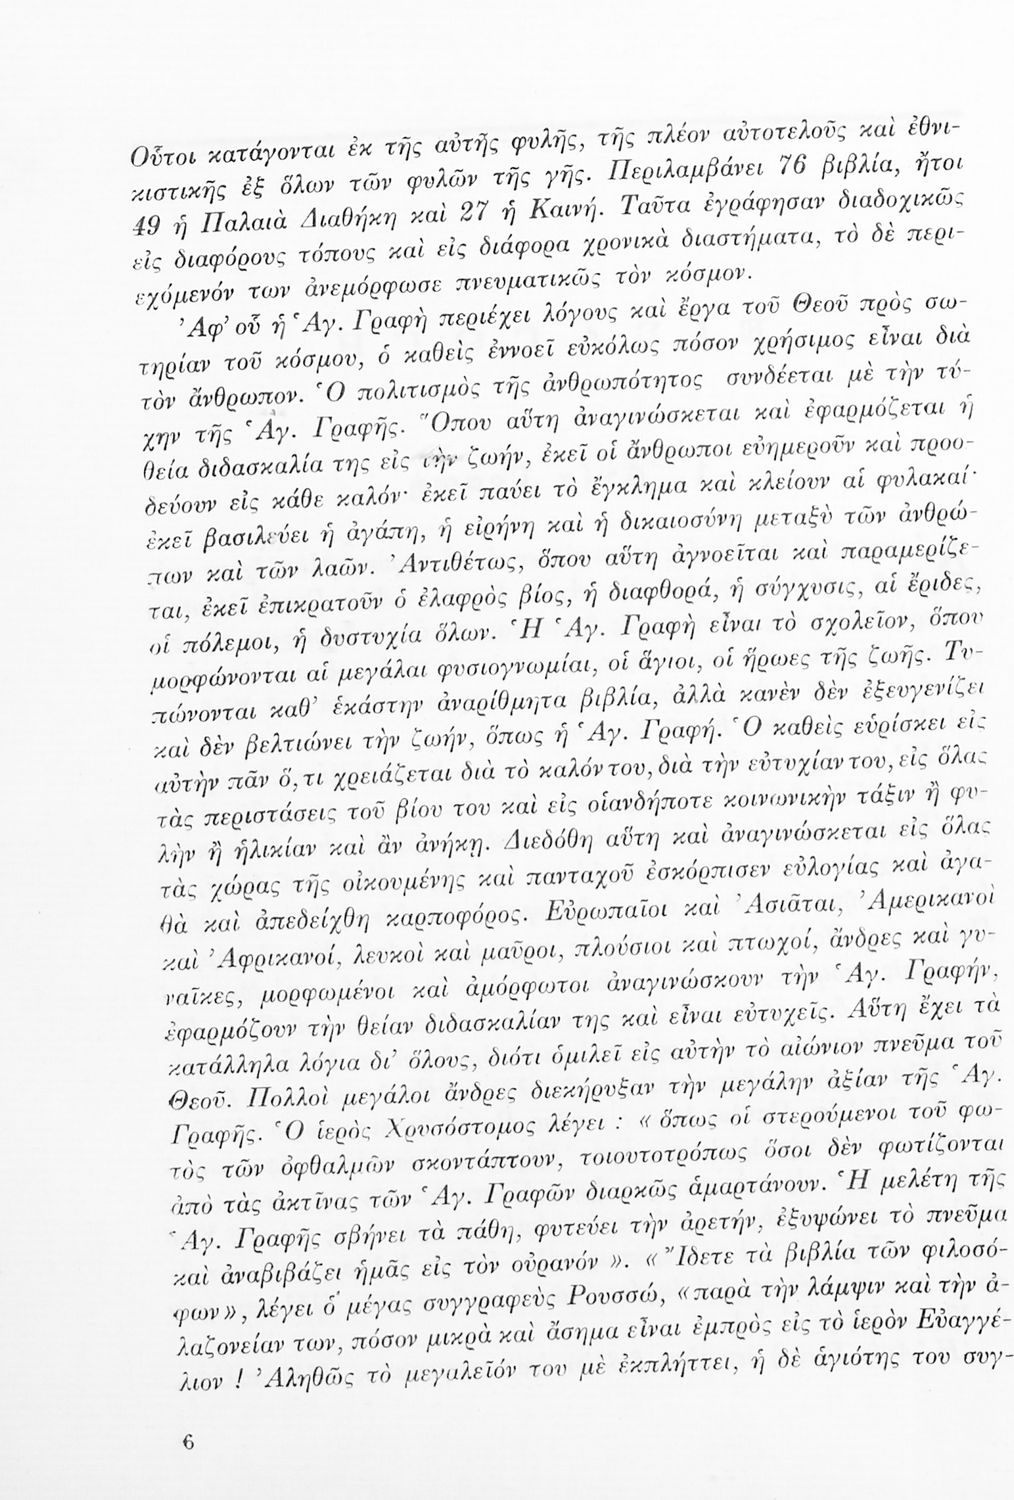 Οὗτοι κατάγονται ἐκ τῆς αὐτῆς φυλῆς, τῆς πλέον αὐτοτελοῦς καὶ ἐθνι-
κιστικῆς ἐξ ὅλων τῶν φυλῶν τῆς γῆς. Περιλαμβάνει 76 βιβλία, ἤτοι
49 ἡ Παλαιὰ Διαθήκη καὶ 27 ἡ Καινή. Ταῦτα ἐγράφησαν διαδοχικῶς
εἰς διαφόρους τόπους καὶ εἰς διάφορα χρονικὰ διαστήματα, τὸ δὲ περι-
εχόμενόν των ἀνεμόρφωσε πνευματικῶς τὸν κόσμον.
Ἀφ' οὗ ἡ Ἁγ. Γραφὴ περιέχει λόγους καὶ ἔργα τοῦ Θεοῦ πρὸς σω-
τηρίαν τοῦ κόσμου, ὁ καθεὶς ἐννοεῖ εὐκόλως πόσον χρήσιμος εἶναι διὰ
τὸν ἄνθρωπον. Ὁ πολιτισμὸς τῆς ἀνθρωπότητος συνδέεται μὲ τὴν τύ-
χην τῆς Ἁγ. Γραφῆς. Ὅπου αὕτη ἀναγινώσκεται καὶ ἐφαρμόζεται ἡ
θεία διδασκαλία της εἰς τὴν ζωήν, ἐκεῖ οἱ ἄνθρωποι εὐημεροῦν καὶ προο-
δεύουν εἰς κάθε καλόν· ἐκεῖ παύει τὸ ἔγκλημα καὶ κλείουν αἱ φυλακαί·
ἐκεῖ βασιλεύει ἡ ἀγάπη, ἡ εἰρήνη καὶ ἡ δικαιοσύνη μεταξὺ τῶν ἀνθρώ-
πων καὶ τῶν λαῶν. Ἀντιθέτως, ὅπου αὕτη ἀγνοεῖται καὶ παραμερίζε-
ται, ἐκεῖ ἐπικρατοῦν ὁ ἐλαφρὸς βίος, ἡ διαφθορά, ἡ σύγχυσις, αἱ ἔριδες,
οἱ πόλεμοι, ἡ δυστυχία ὅλων. Ἡ Ἁγ. Γραφὴ εἶναι τὸ σχολεῖον, ὅπου
μορφώνονται αἱ μεγάλαι φυσιογνωμίαι, οἱ ἅγιοι, οἱ ἥρωες τῆς ζωῆς. Τυ-
πώνονται καθ' ἑκάστην ἀναρίθμητα βιβλία, ἀλλὰ κανὲν δὲν ἐξευγενίζει
καὶ δὲν βελτιώνει τὴν ζωήν, ὅπως ἡ Ἁγ. Γραφή. Ὁ καθεὶς εὑρίσκει εἰς
αὐτὴν πᾶν ὅ,τι χρειάζεται διὰ τὸ καλόν του, διὰ τὴν εὐτυχίαν του, εἰς ὅλας
τὰς περιστάσεις τοῦ βίου του καὶ εἰς οἱανδήποτε κοινωνικὴν τάξιν ἢ φυ-
λὴν ἢ ἡλικίαν καὶ ἂν ἀνήκῃ. Διεδόθη αὕτη καὶ ἀναγινώσκεται εἰς ὅλας
τὰς χώρας τῆς οἰκουμένης καὶ πανταχοῦ ἐσκόρπισεν εὐλογίας καὶ ἀγα-
θὰ καὶ ἀπεδείχθη καρποφόρος. Εὐρωπαῖοι καὶ Ἀσιᾶται, Ἀμερικανοὶ
καὶ Ἀφρικανοί, λευκοὶ καὶ μαῦροι, πλούσιοι καὶ πτωχοί, ἄνδρες καὶ γυ-
ναῖκες, μορφωμένοι καὶ ἀμόρφωτοι ἀναγινώσκουν τὴν Ἁγ. Γραφήν,
ἐφαρμόζουν τὴν θείαν διδασκαλίαν της καὶ εἶναι εὐτυχεῖς. Αὕτη ἔχει τὰ
κατάλληλα λόγια δι' ὅλους, διότι ὁμιλεῖ εἰς αὐτὴν τὸ αἰώνιον πνεῦμα τοῦ
Θεοῦ. Πολλοὶ μεγάλοι ἄνδρες διεκήρυξαν τὴν μεγάλην ἀξίαν τῆς Ἁγ.
Γραφῆς. Ὁ ἱερὸς Χρυσόστομος λέγει : « ὅπως οἱ στερούμενοι τοῦ φω-
τὸς τῶν ὀφθαλμῶν σκοντάπτουν, τοιουτοτρόπως ὅσοι δὲν φωτίζονται
ἀπὸ τὰς ἀκτῖνας τῶν Ἁγ. Γραφῶν διαρκῶς ἁμαρτάνουν. Ἡ μελέτη τῆς
Ἁγ. Γραφῆς σβήνει τὰ πάθη, φυτεύει τὴν ἀρετήν, ἐξυψώνει τὸ πνεῦμα
καὶ ἀναβιβάζει ἡμᾶς εἰς τὸν οὐρανόν ». « Ἴδετε τὰ βιβλία τῶν φιλοσό-
φων », λέγει ὁ μέγας συγγραφεὺς Ρουσσώ, «παρὰ τὴν λάμψιν καὶ τὴν ἀ-
λαζονείαν των, πόσον μικρὰ καὶ ἄσημα εἶναι ἐμπρὸς εἰς τὸ ἱερὸν Εὐαγγέ-
λιον ! Ἀληθῶς τὸ μεγαλεῖόν του μὲ ἐκπλήττει, ἡ δὲ ἁγιότης του συγ-
6